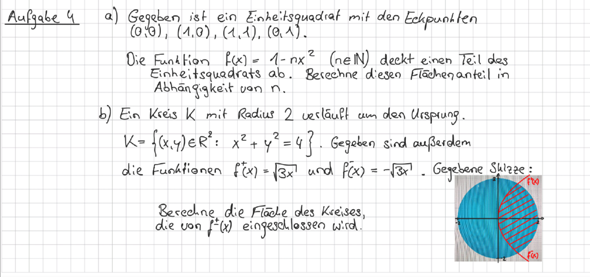 Aufgabe 4 a) Gegeben ist ein Einheitsquadrat mit den Eckpunkten
(0,0), (1,0), (1,1), (0,1).
Die Funktion f(x) = 1 - nx² (n∈ℕ) deckt einen Teil des
Einheitsquadrats ab. Berechne diesen Flächenanteil in
Abhängigkeit von n.
b) Ein Kreis K mit Radius 2 verläuft um den Ursprung.
K = {(x,y) ∈ R²: x² + y² = 4}. Gegeben sind außerdem
die Funktionen f⁺(x) = √3x und f⁻(x) = -√3x. Gegebene Skizze:
Berechne die Fläche des Kreises,
die von f⁺⁻(x) eingeschlossen wird.
f⁺(x)
f⁻(x)